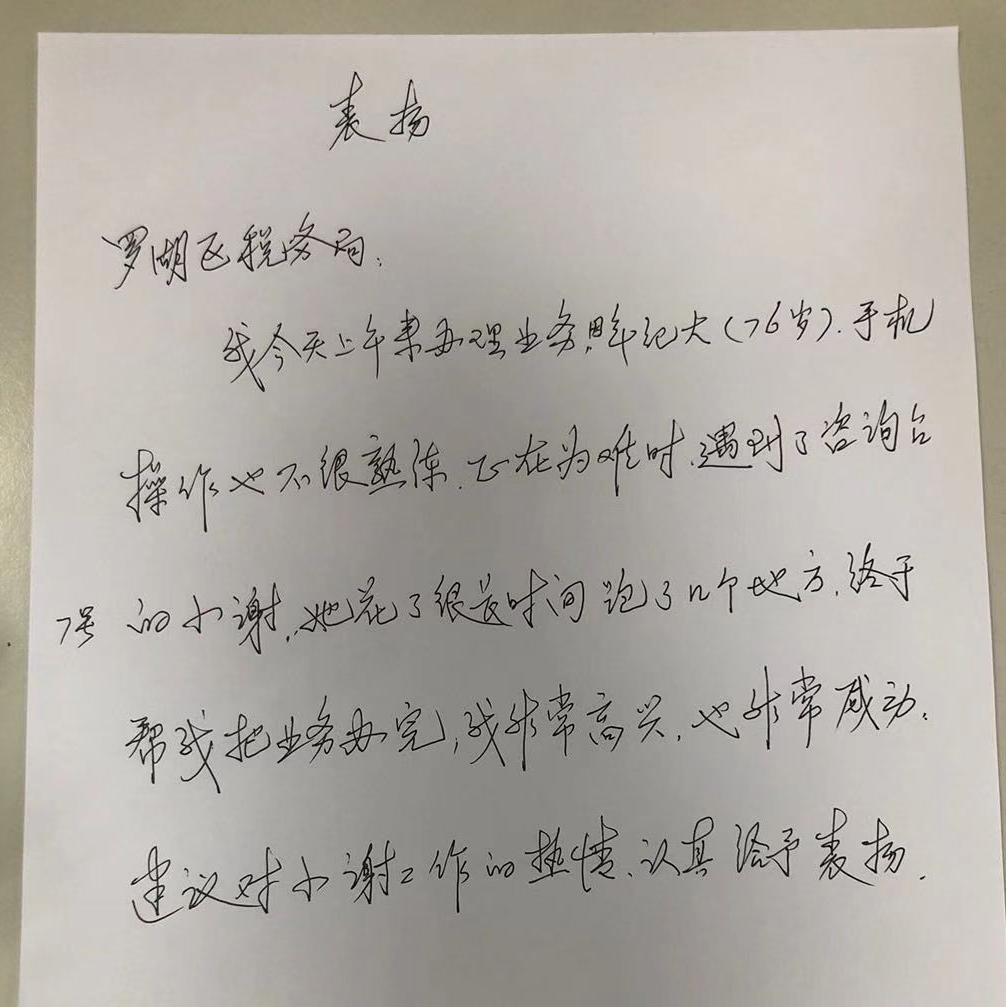 表扬
罗湖区税务局:
我今天上午来办理业务,因年纪大(76岁).手机
操作也不很熟练.正在为难时.遇到了咨询台
7号 的小谢,她花了很长时间跑了几个地方.终于
帮我把业务办完,我非常高兴.也非常感动.
建议对小谢工作的热情、认真给予表扬.